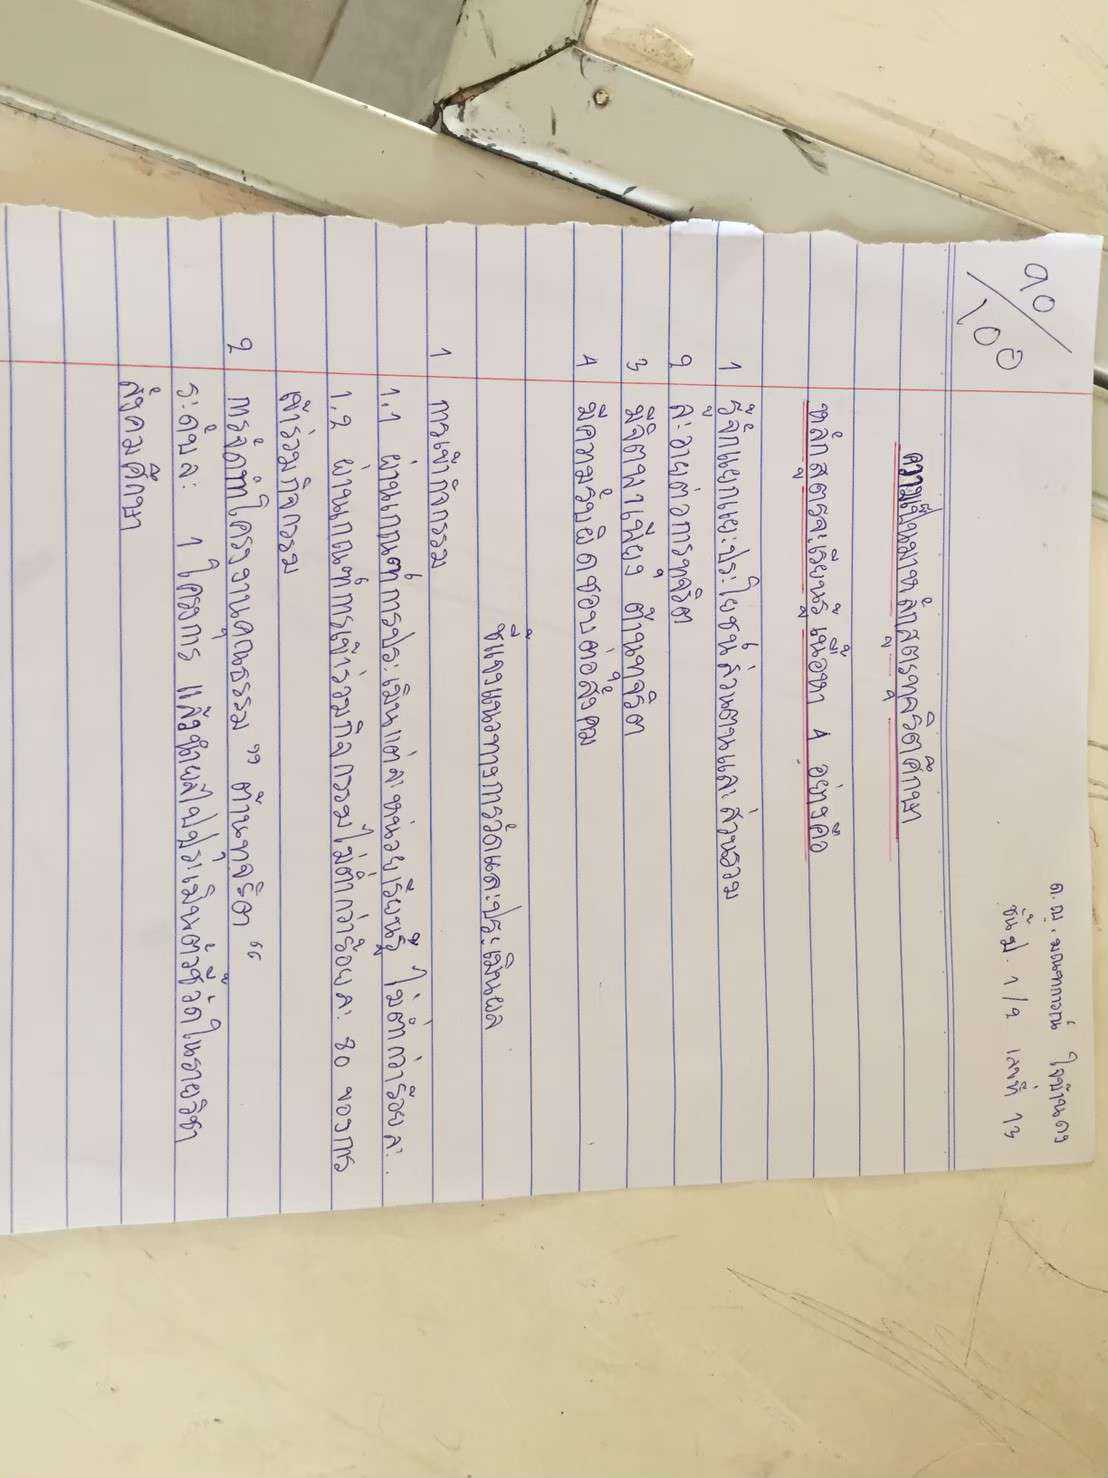 90/100
ด.ญ. มณฑกาญน์ ใจบ้านดง
ชั้น ป. 1/2 เลขที่ 13
ความเป็นมาหลักสูตรทุจริตศึกษา
หลักสูตรจะเรียนรู้เนื้อหา 4 อย่างคือ
1 รู้จักแยกแยะประโยชน์ส่วนตนและส่วนรวม
2 ละอายต่อการทุจริต
3 มีจิตพอเพียง ต้านทุจริต
4 มีความรับผิดชอบต่อสังคม
ชี้แจงแนวทางการวัดและประเมินผล
1 การเข้ากิจกรรม
1.1 ผ่านเกณฑ์การประเมินแต่ละหน่วยเรียนรู้ ไม่ต่ำกว่าร้อยละ
1.2 ผ่านเกณฑ์การเข้าร่วมกิจกรรมไม่ต่ำกว่าร้อยละ 80 ของการ
เข้าร่วมกิจกรรม
2 การจัดทำโครงงานคุณธรรม " ต้านทุจริต "
ระดับละ 1 โครงการ แล้วประเมินตัวชี้วัดในรายวิชา
สังคมศึกษา